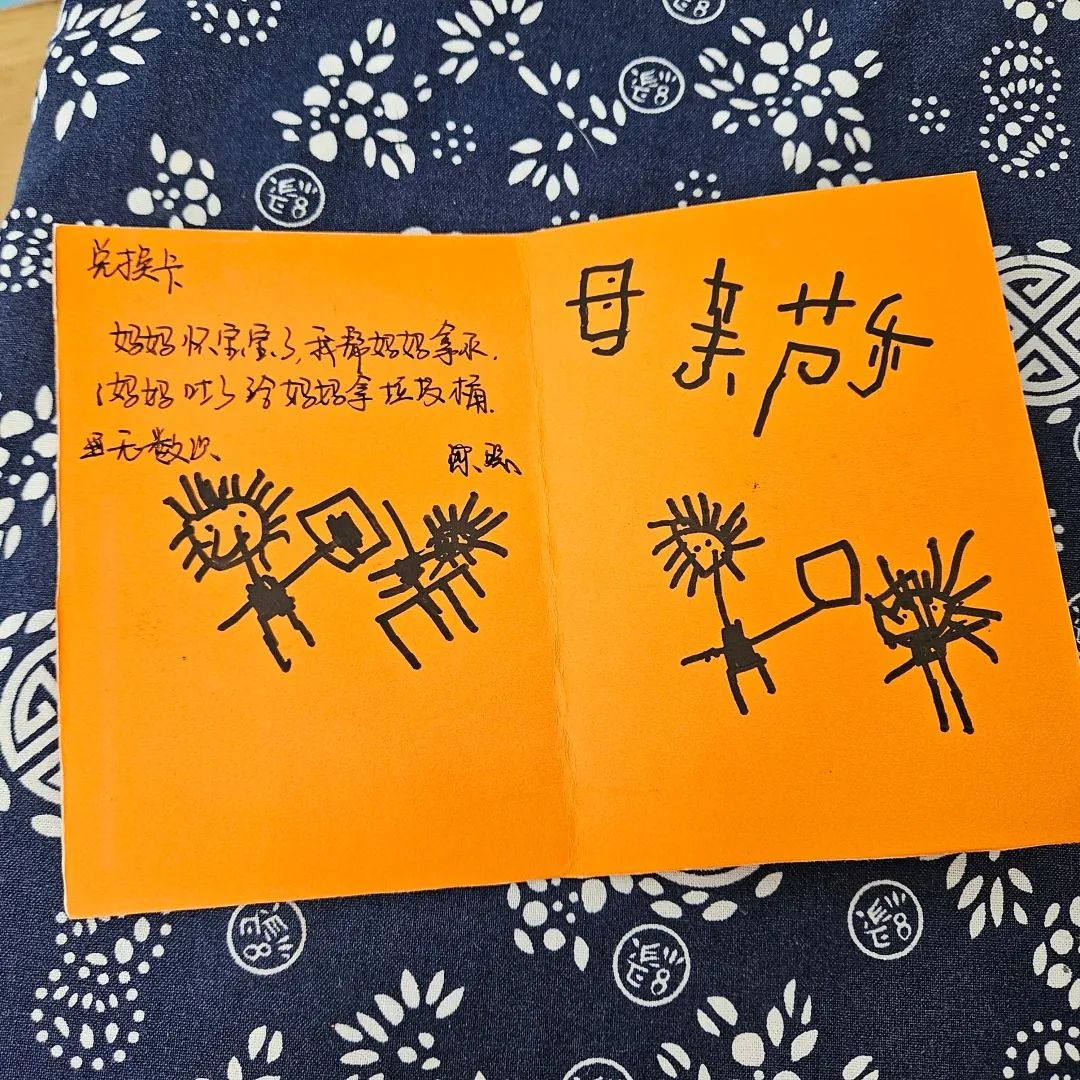 兑换卡
妈妈怀宝宝了,我帮妈妈拿水.
妈妈吐了给妈妈拿垃圾桶.
无数次
母亲节乐